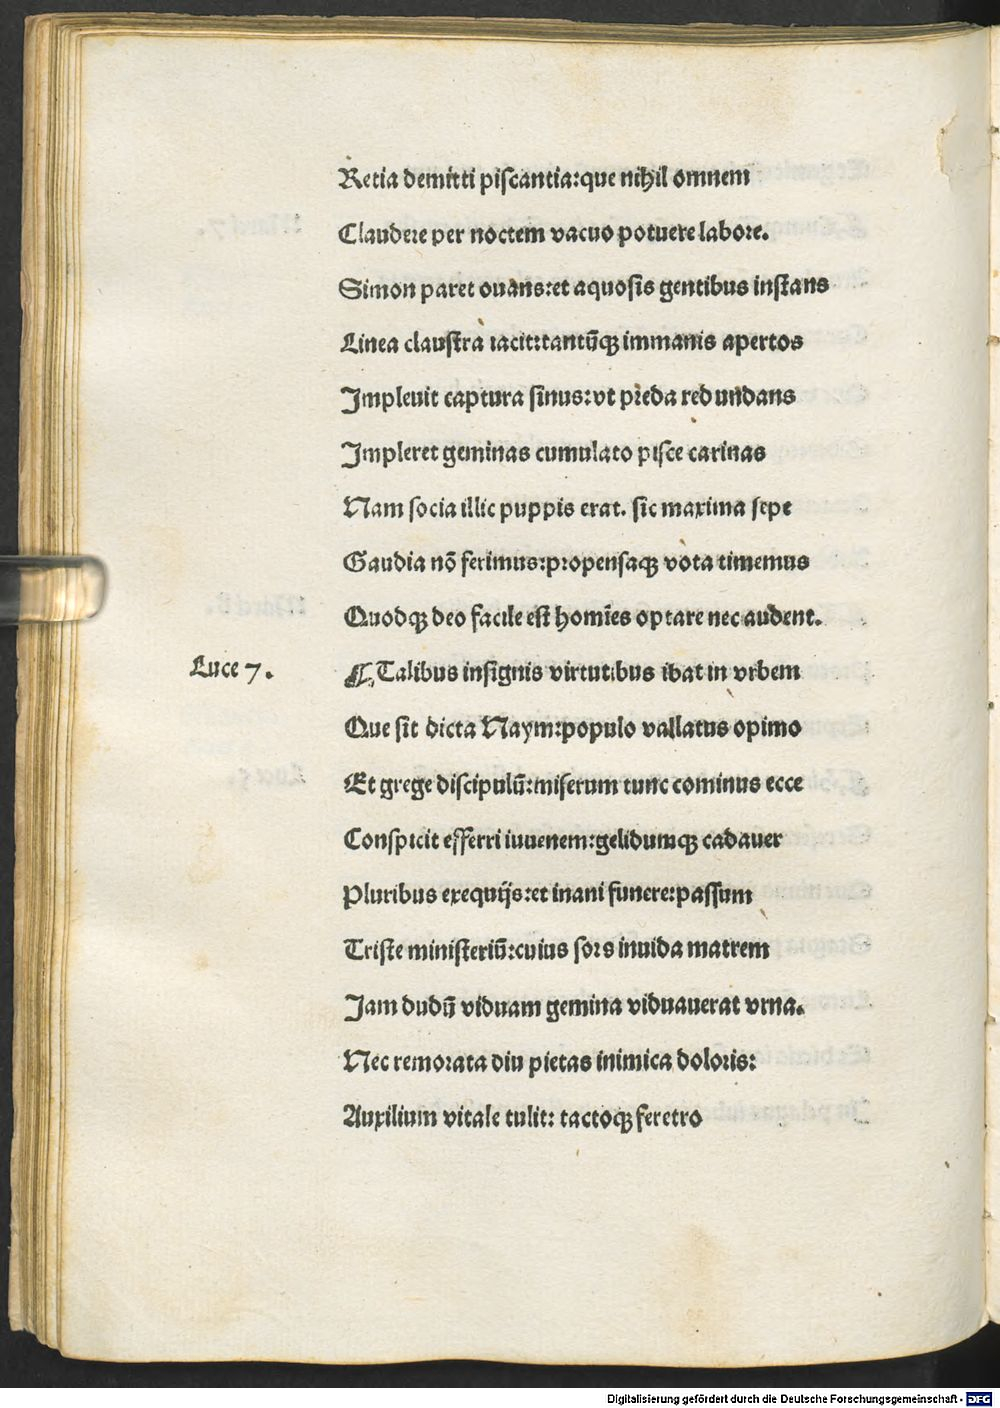 Retia demitti piscantia:que nihil omnem
Claudere per noctem vacuo potuere labore.
Simon paret ouans:et aquosis gentibus instans
Linea claustra iacit:tantūqꝫ immanis apertos
Impleuit captura sinus:vt preda redundans
Impleret geminas cumulato pisce carinas
Nam socia illic puppis erat. sic maxima sepe
Gaudia nō ferimus:propensaqꝫ vota timemus
Quodqꝫ deo facile est homīes optare nec audent.
Luce 7. ¶Talibus insignis virtutibus ibat in vrbem
Que sit dicta Naym:populo vallatus opimo
Et grege discipulū:miserum tunc cominus ecce
Conspicit efferri iuuenem:gelidumqꝫ cadauer
Pluribus exequijs:et inani funere:passum
Triste ministeriū:cuius sors inuida matrem
Jam dudū viduam gemina viduauerat vrna.
Nec remorata diu pietas inimica doloris:
Auxilium vitale tulit: tactoqꝫ feretro
Digitalisierung gefördert durch die Deutsche Forschungsgemeinschaft - DFG